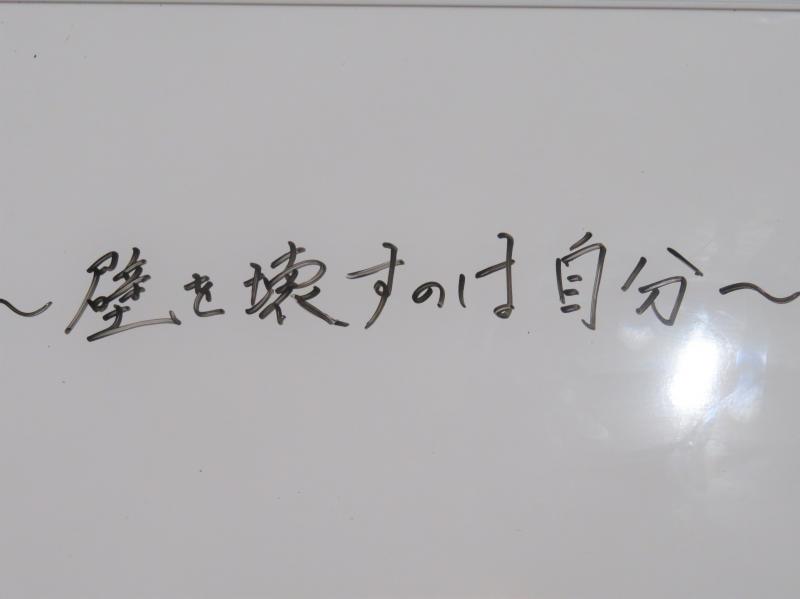 ～壁を壊すのは自分～